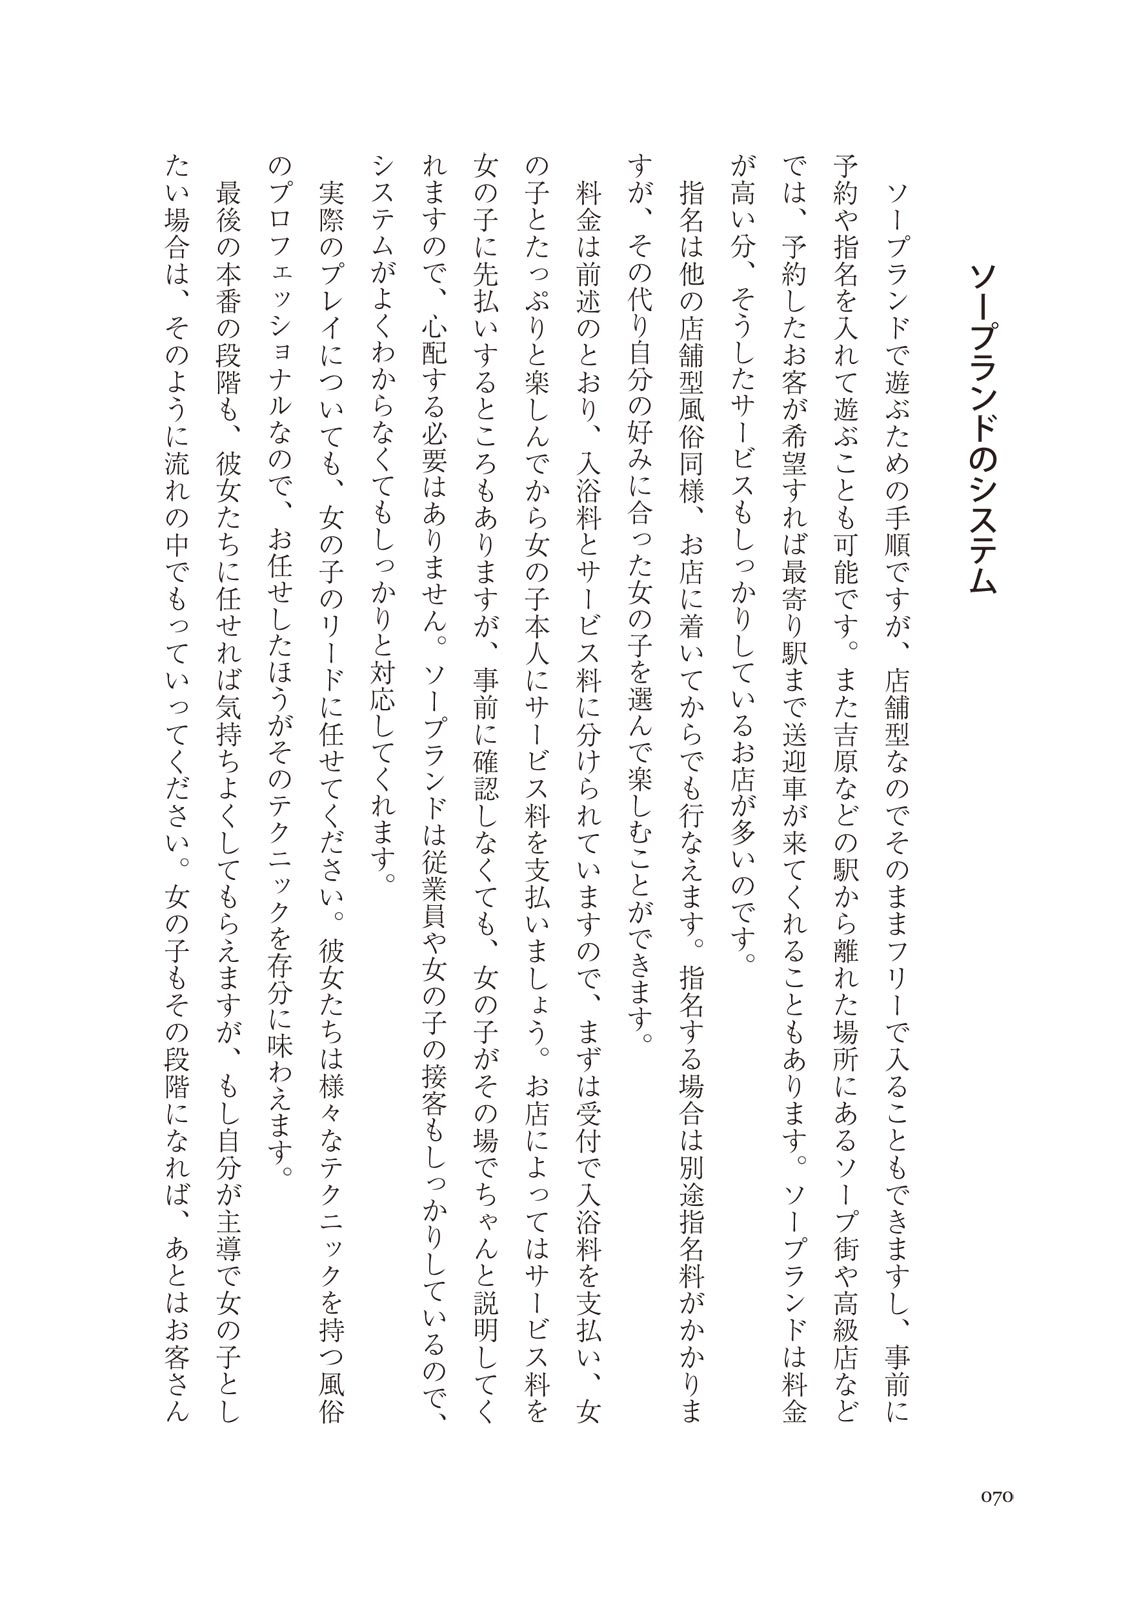 ソープランドのシステム
ソープランドで遊ぶための手順ですが、店舗型なのでそのままフリーで入ることもできますし、事前に
予約や指名を入れて遊ぶことも可能です。また吉原などの駅から離れた場所にあるソープ街や高級店など
では、予約したお客が希望すれば最寄り駅まで送迎車が来てくれることもあります。ソープランドは料金
が高い分、そうしたサービスもしっかりしているお店が多いのです。
指名は他の店舗型風俗同様、お店に着いてからでも行なえます。指名する場合は別途指名料がかかりま
すが、その代り自分の好みに合った女の子を選んで楽しむことができます。
料金は前述のとおり、入浴料とサービス料に分けられていますので、まずは受付で入浴料を支払い、女
の子とたっぷりと楽しんでから女の子本人にサービス料を支払いましょう。お店によってはサービス料を
女の子に先払いするところもありますが、事前に確認しなくても、女の子がその場でちゃんと説明してく
れますので、心配する必要はありません。ソープランドは従業員や女の子の接客もしっかりしているので、
システムがよくわからなくてもしっかりと対応してくれます。
実際のプレイについても、女の子のリードに任せてください。彼女たちは様々なテクニックを持つ風俗
のプロフェッショナルなので、お任せしたほうがそのテクニックを存分に味わえます。
最後の本番の段階も、彼女たちに任せれば気持ちよくしてもらえますが、もし自分が主導で女の子とし
たい場合は、そのように流れの中でもっていってください。女の子もその段階になれば、あとはお客さん
070